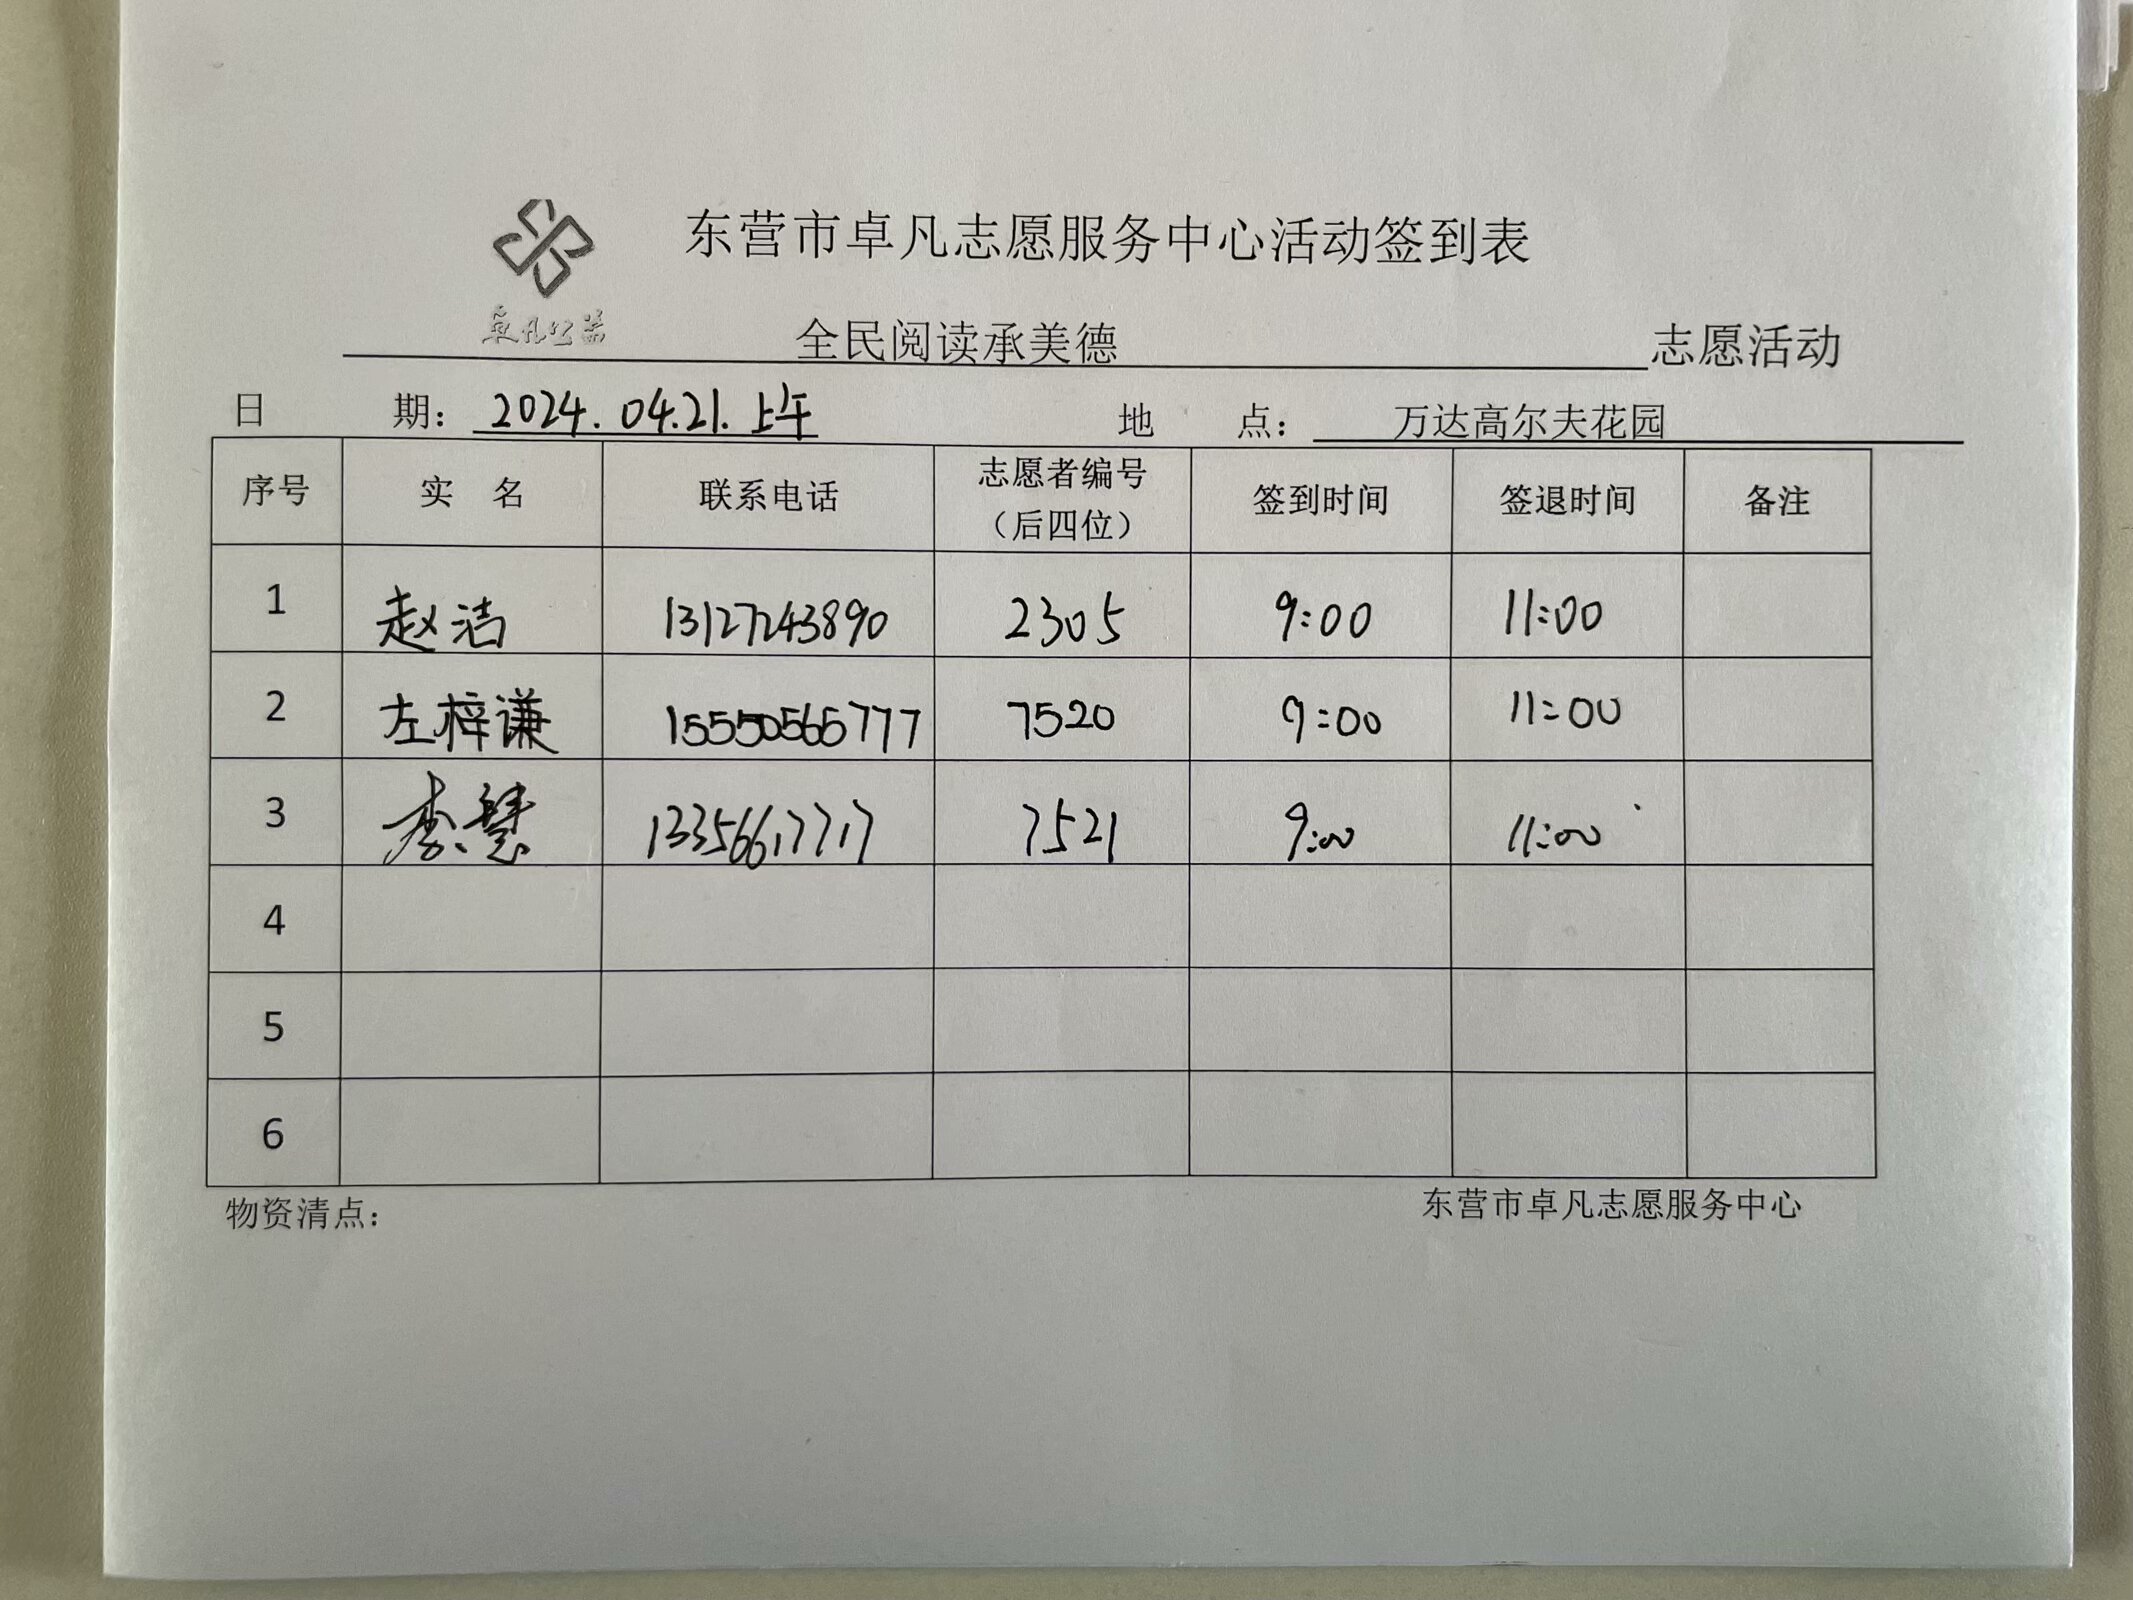 东营市卓凡志愿服务中心活动签到表
卓凡公益
全民阅读承美德 志愿活动
日 期： 2024.04.21.上午 地 点： 万达高尔夫花园
序号 实 名 联系电话 志愿者编号（后四位） 签到时间 签退时间 备注
1 赵洁 13127243890 2305 9:00 11:00
2 左梓谦 15550565777 7520 9:00 11:00
3 李慧 13356617717 7521 9:00 11:00
4
5
6
物资清点： 东营市卓凡志愿服务中心